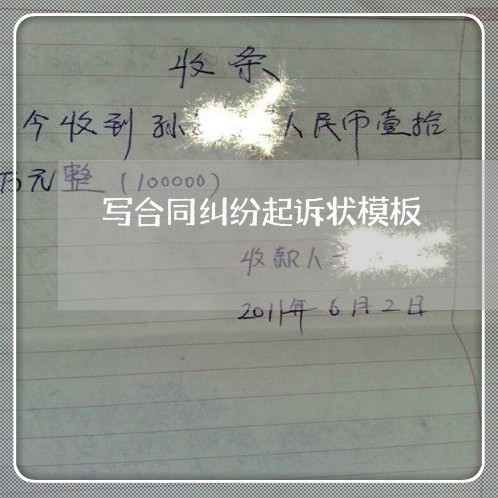 收条
今收到孙 人民币壹拾
万元整（100000）
写合同纠纷起诉状模板
收款人
2011年6月2日